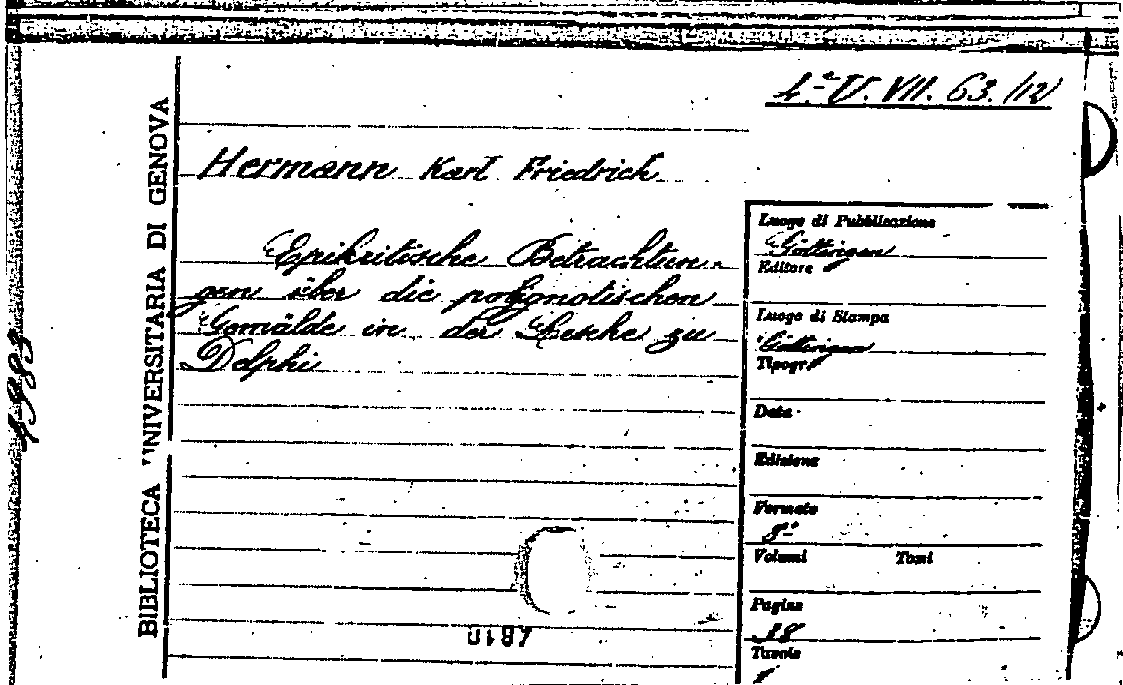 4.° U. VII. 63. /12
BIBLIOTECA UNIVERSITARIA DI GENOVA
Hermann Karl Friedrich
Epikritische Betrachtun-
gen über die polygnotischen
Gemälde in der Lesche zu
Delphi
Luogo di Pubblicazione
Göttingen
Editore
Luogo di Stampa
Göttingen
Tipogr.
Data
Edizione
Formato
8°
Volumi Tomi
Pagine
38
Tavole
1